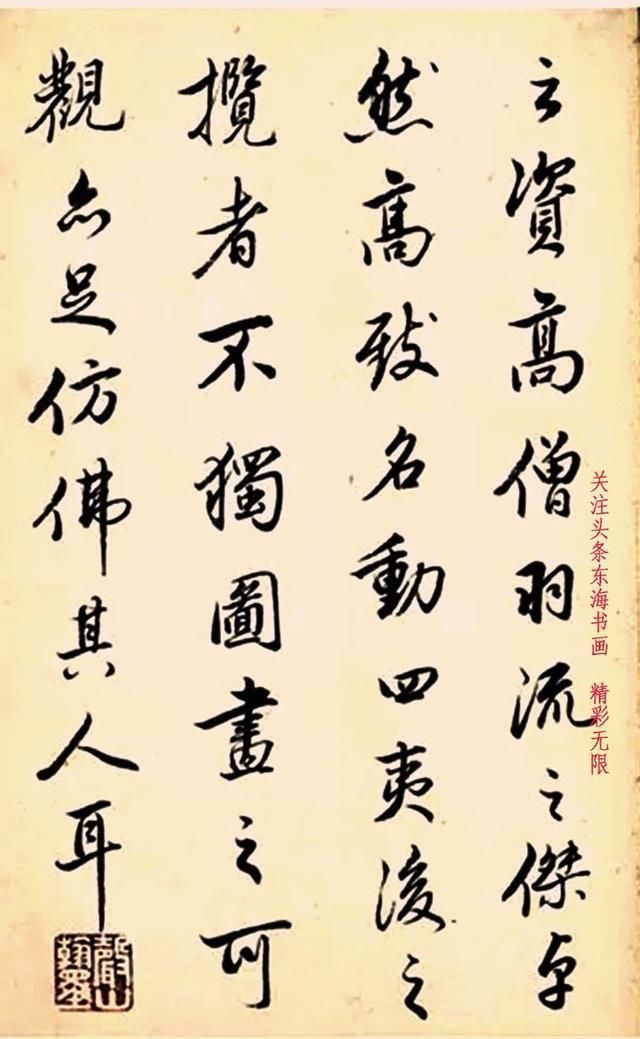 之資高僧羽流之傑卓
然高致名動四夷後之
攬者不獨圖畫之可
觀亦足仿佛其人耳
聲山翰墨
关注头条东海书画 精彩无限